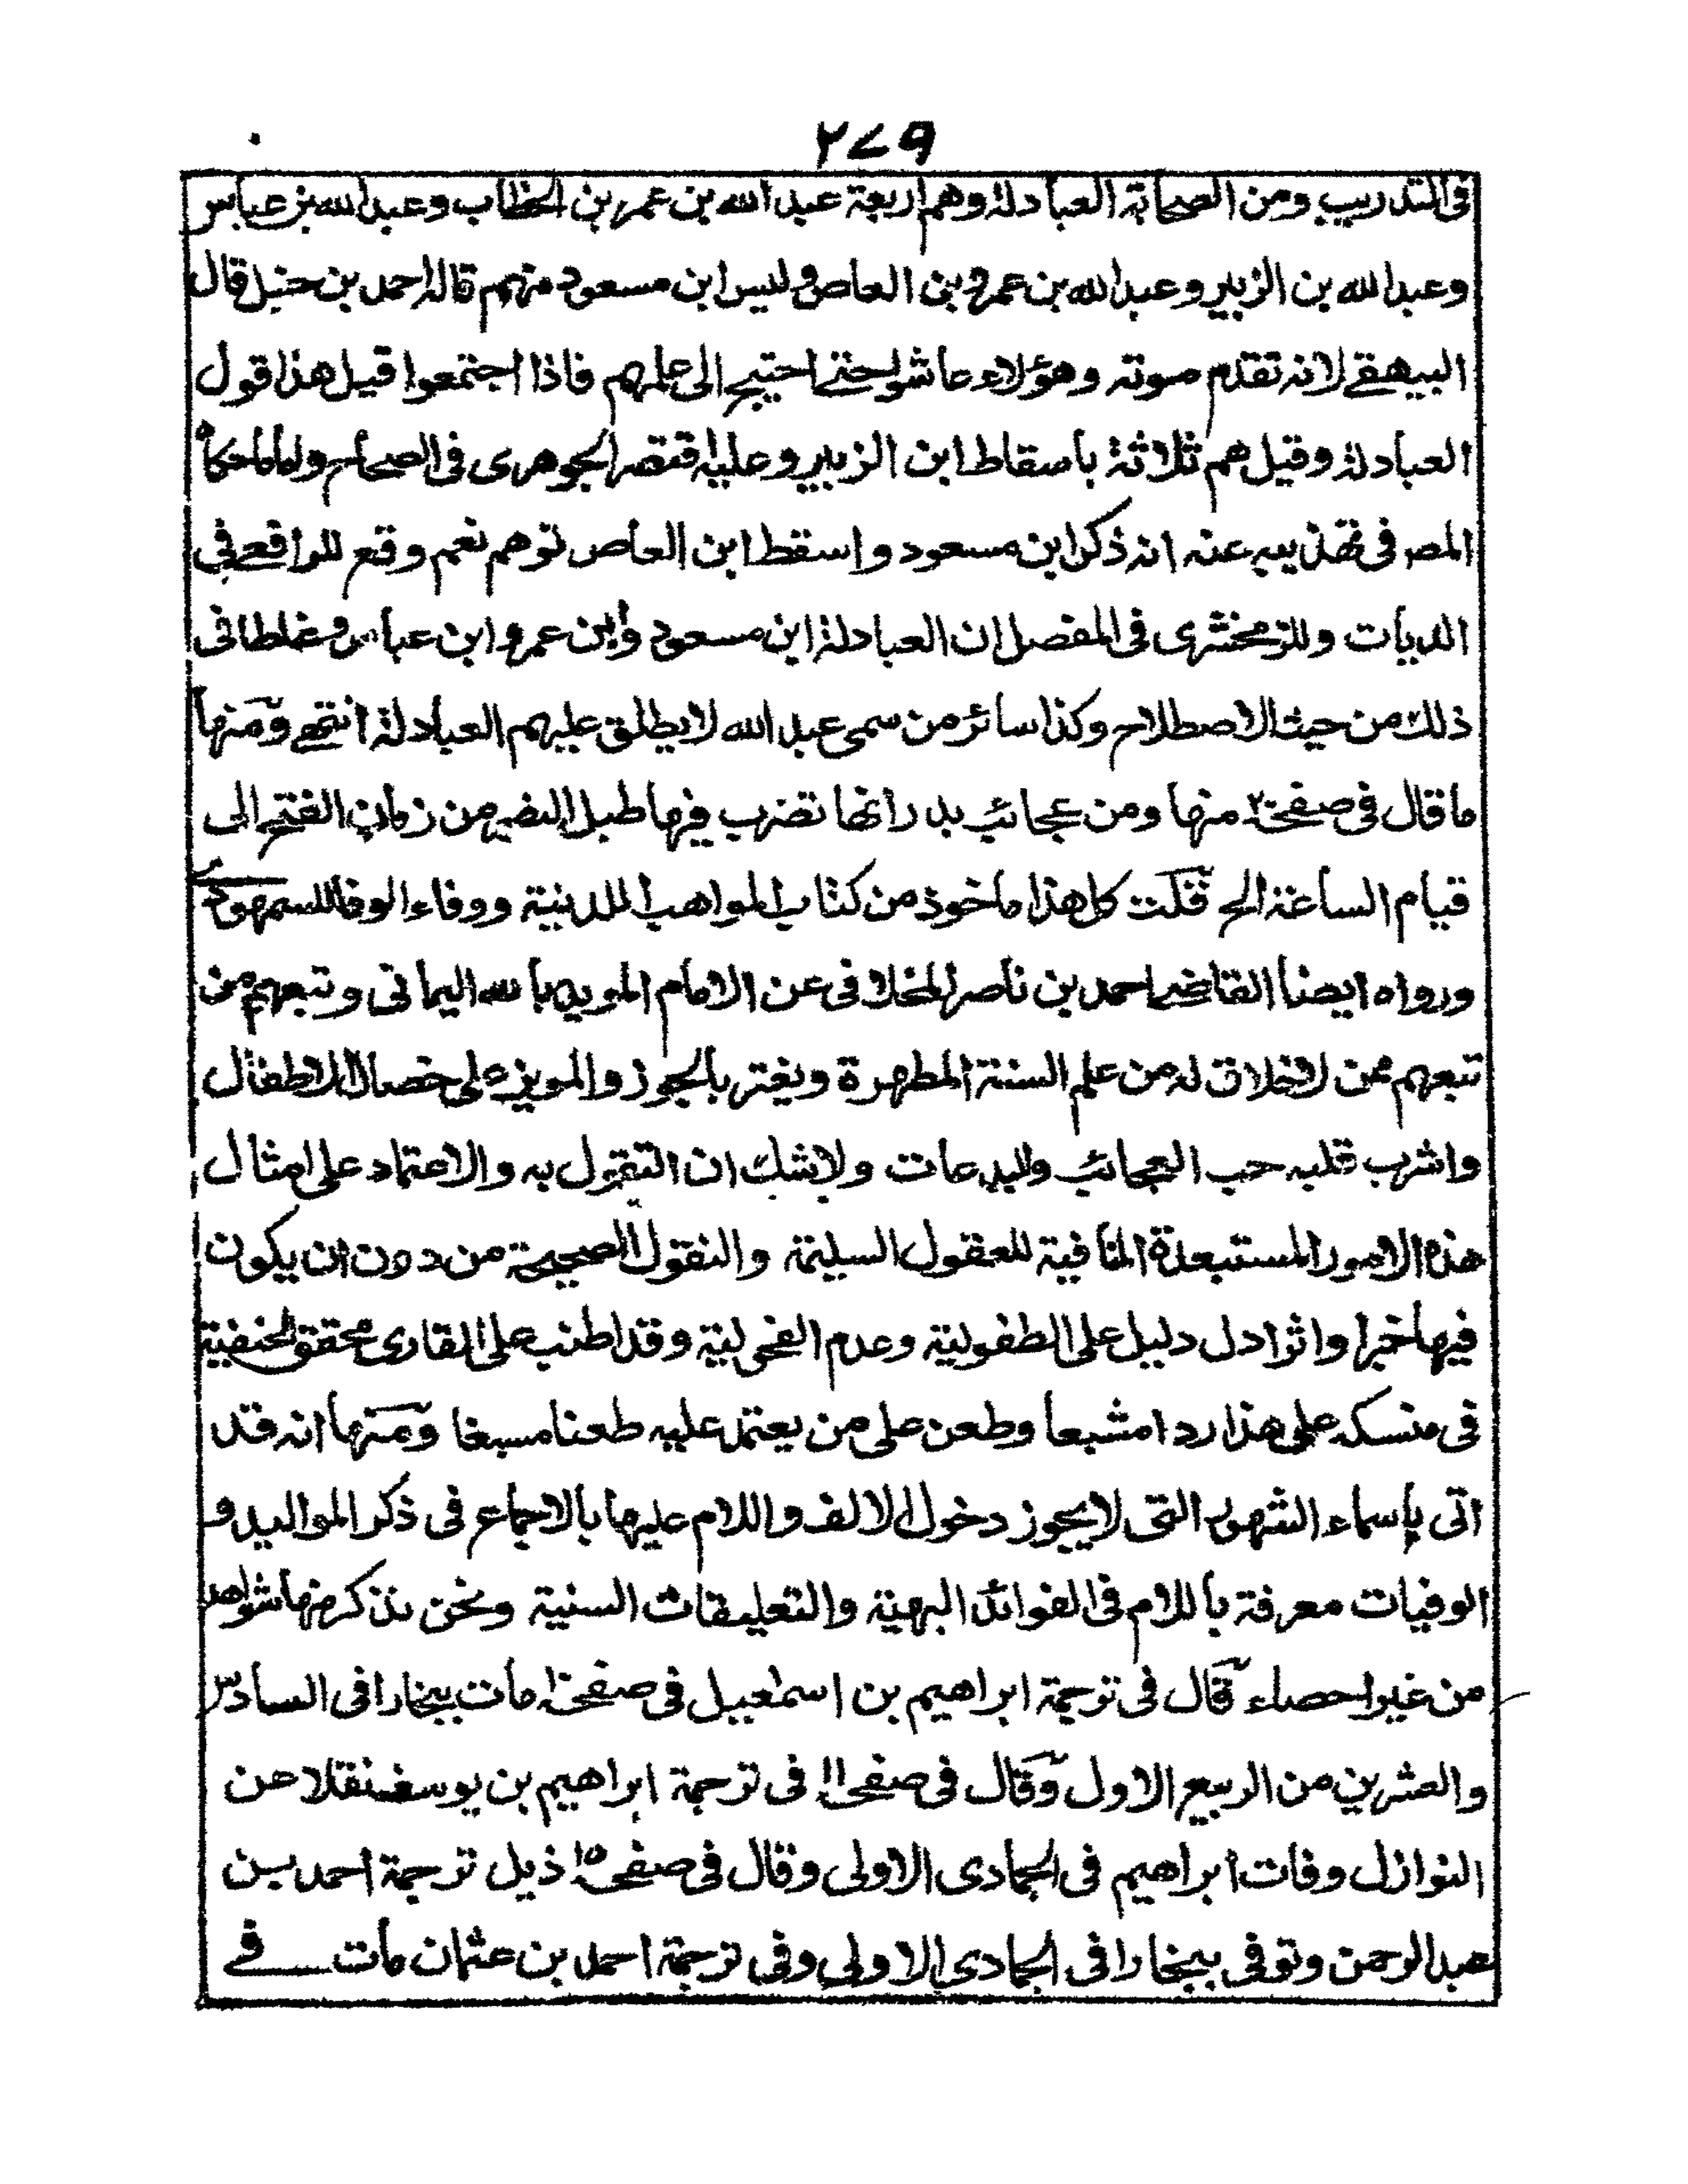 ٢٧٩
فى التدريب ومن الصحابة العبادلة وهم اربعة عبد الله بن عمر بن الخطاب وعبد الله بن عباس
وعبد الله بن الزبير وعبد الله بن عمرو بن العاص وليس ابن مسعود منهم قاله احمد بن حنبل قال
البيهقے لانه تقدم موته وهؤلاء عاشوا حتے احتيج الى علمهم فاذا اجتمعوا قيل هذا قول
العبادلة وقيل هم ثلاثة باسقاط ابن الزبير وعليه اقتصر الجوهرى فى الصحاح واما ما حكاه
المصر فى تهذيبه عنه انه ذكر ابن مسعود واسقط ابن العاص توهم نعم وقع للرافعے فى
الديات وللزمخشرى فى المفصل ان العبادلة ابن مسعود وابن عمر وابن عباس وغلطا فى
ذلك من حيث الاصطلاح وكذا سائر من سمى عبد الله لا يطلق عليهم العبادلة انتهے ومنها
ما قال فى صفحة ٢ منها ومن عجائب بدر انها تضرب فيها طبل النصر من زمان الفتح الى
قيام الساعة الخ قلت كل هذا ماخوذ من كتاب المواهب اللدينية ووفاء الوفا للسمهودى
ورواه ايضا القاضے احمد بن ناصر المخلافى عن الامام المويد بالله اليمانى وتبعهم من
تبعهم ممن لا خلاق له من علم السنة المطهرة ويغتر بالجوز والمويز على خصال الاطفال
واشرب قلبه حب العجائب والبدعات ولا شك ان التقول به والاعتماد على امثال
هذه الامور المستبعدة المنافية للعقول السليمة والنقول الصحيحة من دون ان يكون
فيها خبر او اثر ادل دليل على الطفولية وعدم الفحولية وقد اطنب على القارى محقق الحنفية
فى منسكه على هذا ردا مشبعا وطعن على من يعتمد عليه طعنا مسبغا ومنها انه قد
اتى باسماء الشهور التى لا يجوز دخول الالف واللام عليها بالاجماع فى ذكر المواليد و
الوفيات معرفة باللام فى الفوائد البهية والتعليقات السنية ونحن نذكر منها شواهد
من غير احصاء قال فى ترجمة ابراهيم بن اسمعيل فى صفحة ١٠ مات ببخارا فى السادس
والعشرين من الربيع الاول وقال فى صفحة ١١ فى ترجمة ابراهيم بن يوسف نقلا عن
النوازل وفات ابراهيم فى الجمادى الاولى وقال فى صفحة ١٥ ذيل ترجمة احمد بن
عبد الرحمن وتوفى ببخارا فى الجمادى الاولى وفى ترجمة احمد بن عثمان مات فے